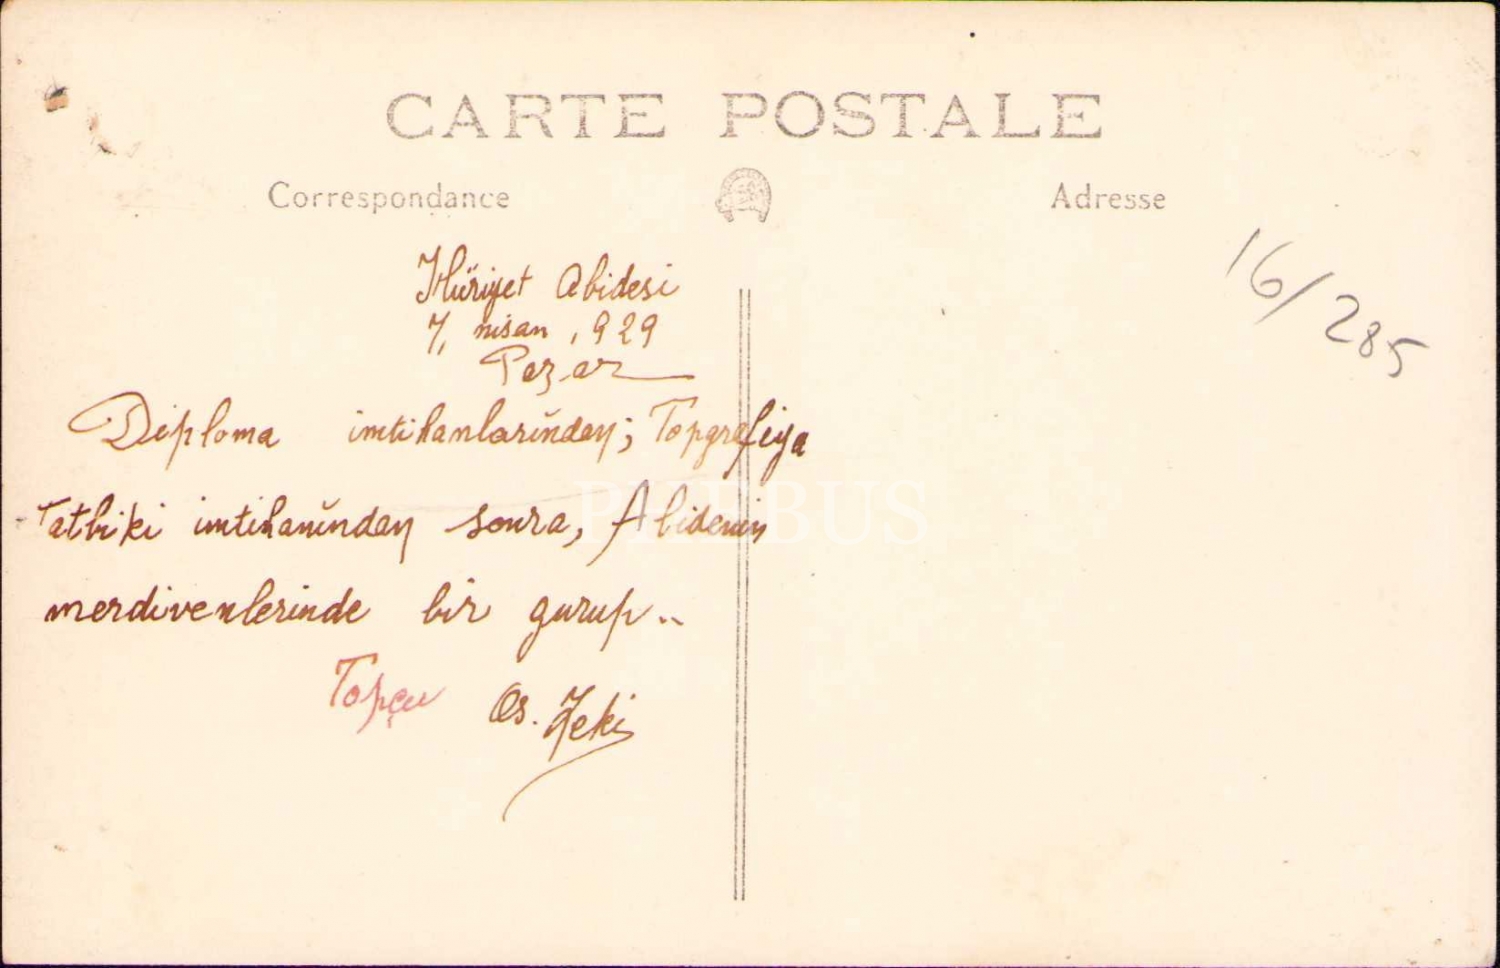 CARTE POSTALE
Correspondance
Adresse
Hüriyet Abidesi
7, nisan , 929
Pazar
16/285
Diploma imtihanlarından; Topgrafiya
Tatbiki imtihanından sonra, Abidenin
merdivenlerinde bir gurup..
Topçu Os. Zeki
PHEBUS